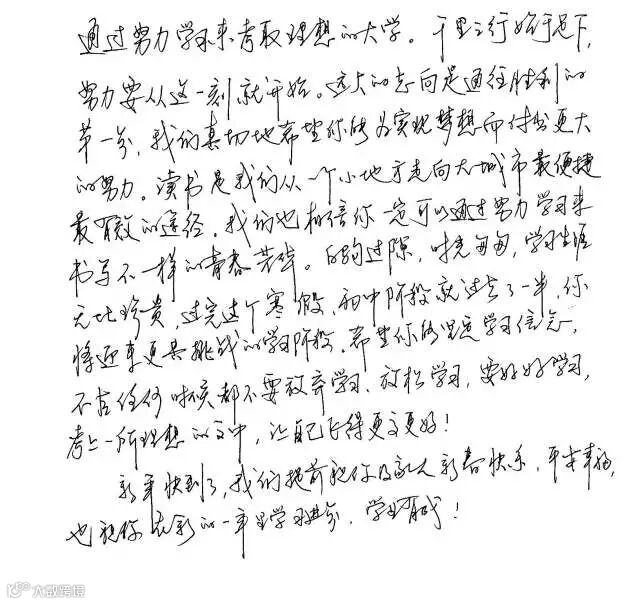 通过努力学习来考取理想的大学。千里之行始于足下，
努力要从这一刻就开始。远大的志向是通往胜利的
第一步，我们真切地希望你能为实现梦想而付出更大
的努力。读书是我们从一个小地方走向大城市最便捷
最有效的途径，我们也相信你一定可以通过努力学习来
书写不一样的青春芳华。白驹过隙，时光匆匆，学习生涯
无比珍贵，过完这个寒假，初中阶段就过去了一半，你
将迎来更具挑战的学习阶段，希望你能坚定学习信念，
不管任何时候都不要放弃学习、放松学习，要好好学习，
考上一所理想的高中，让自己飞得更高更好！
新年快到了，我们提前祝你及家人新春快乐，平安幸福，
也祝你在新的一年里学习进步、学习有成！
大数跨境